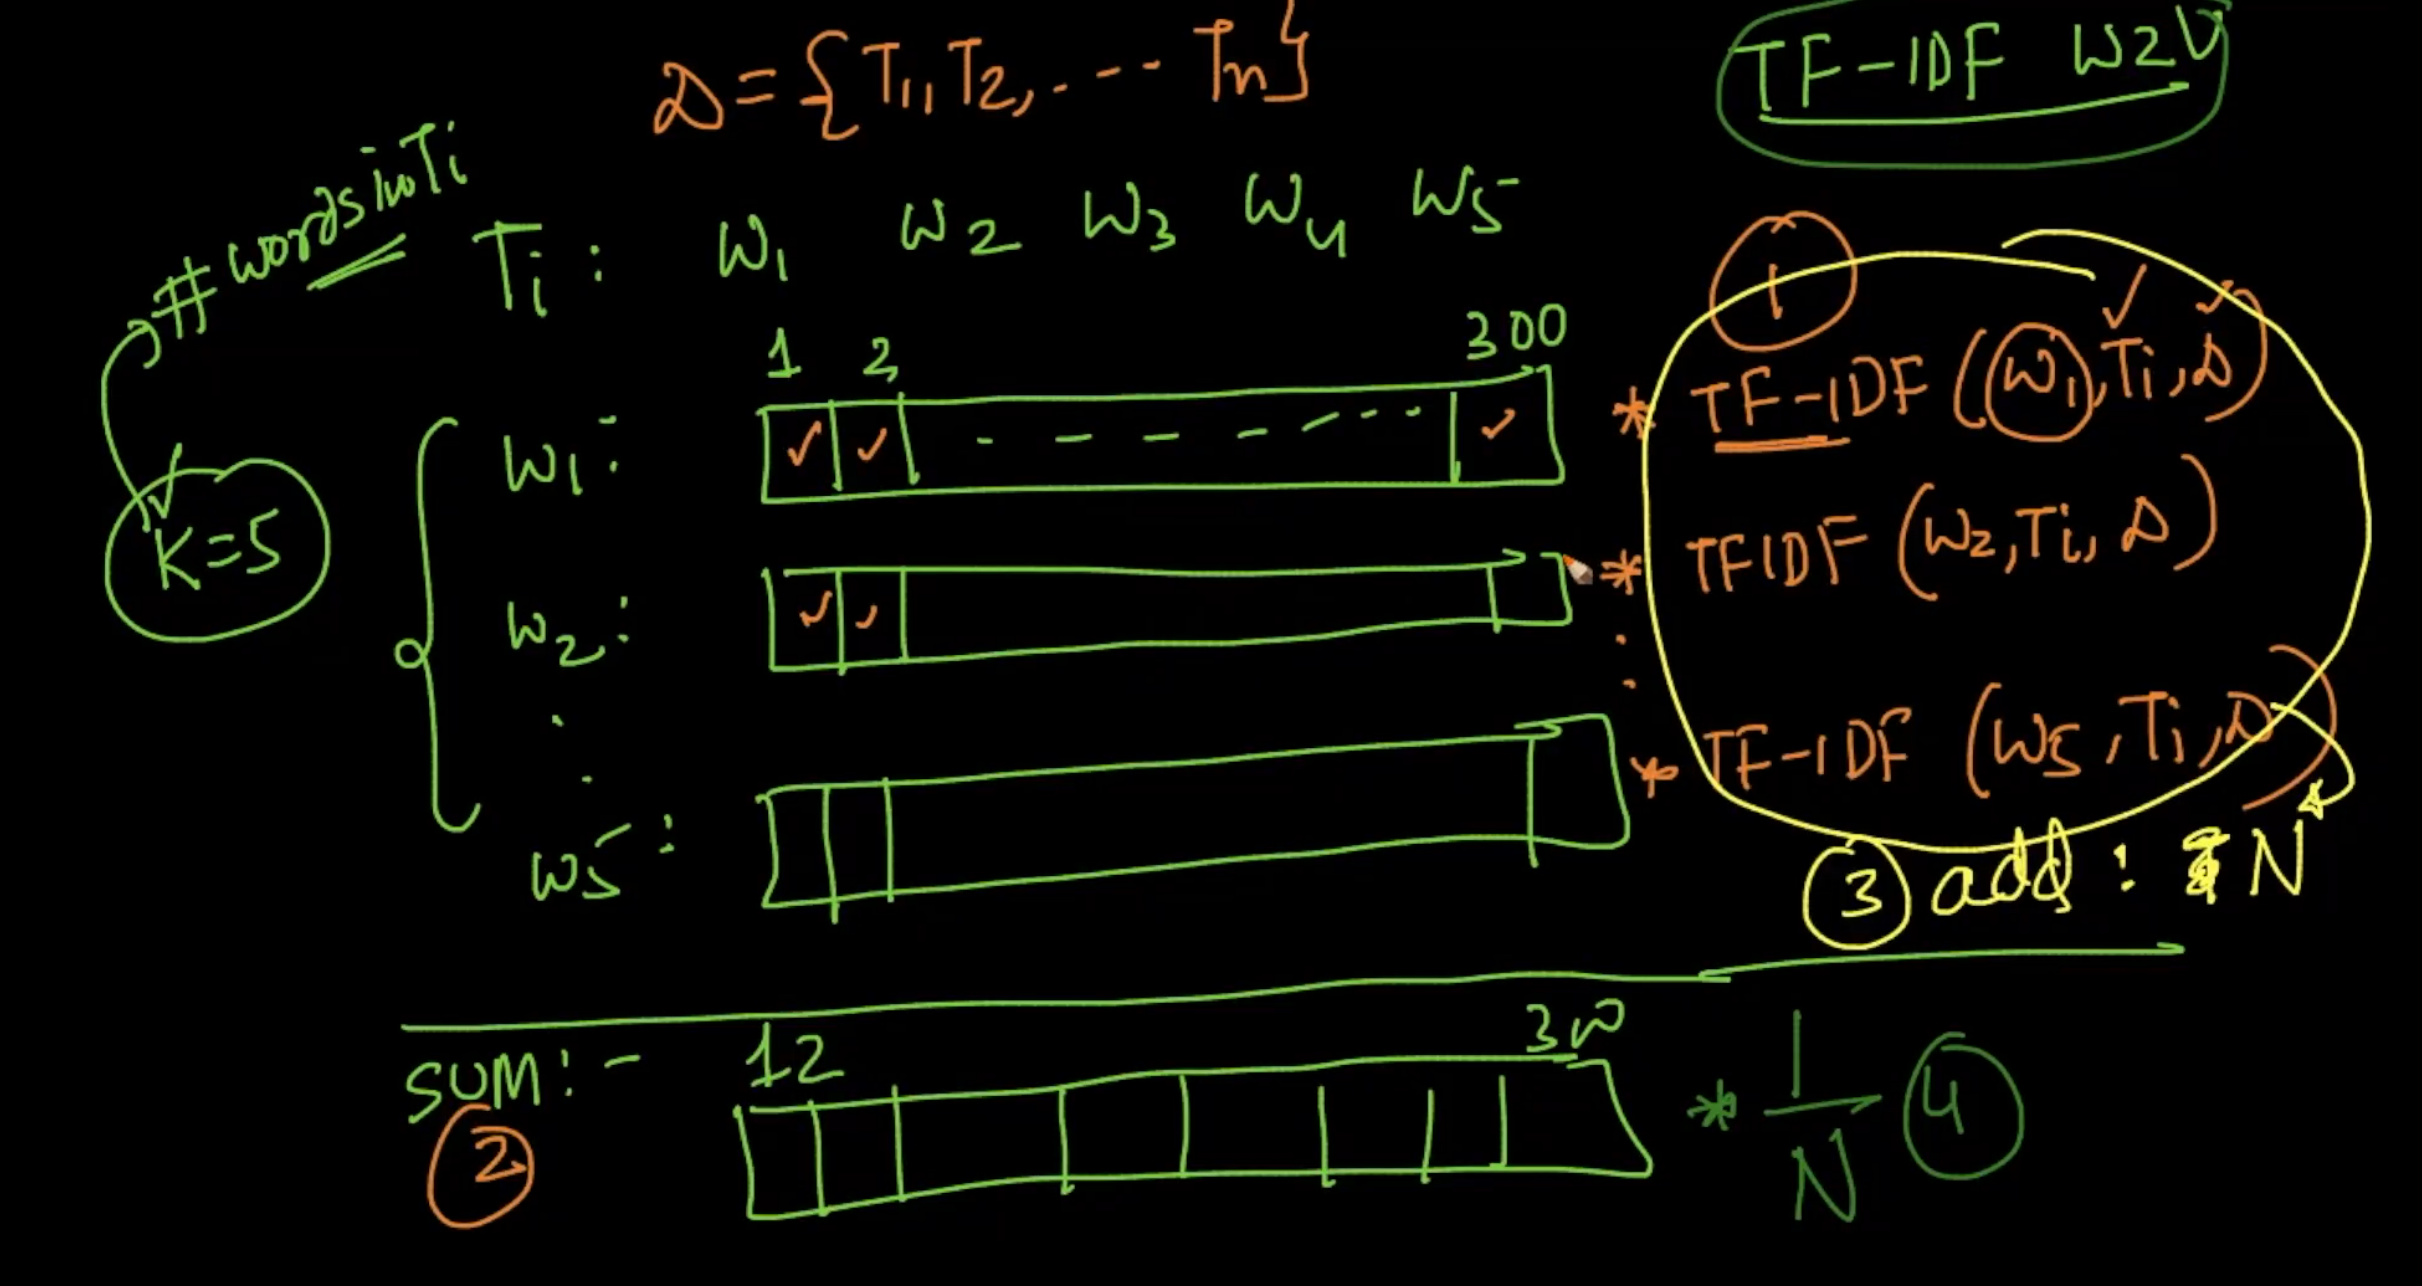 D = {T1, T2, ... Tn}
TF-IDF W2V
# words in Ti
Ti : W1 W2 W3 W4 W5
1
1 2 300
K=5
W1: * TF-IDF (W1, Ti, D)
W2: * TFIDF (W2, Ti, D)
W5: * TF-IDF (W5, Ti, D)
3 add : N
SUM:- 1 2 300
2
* 1/N 4